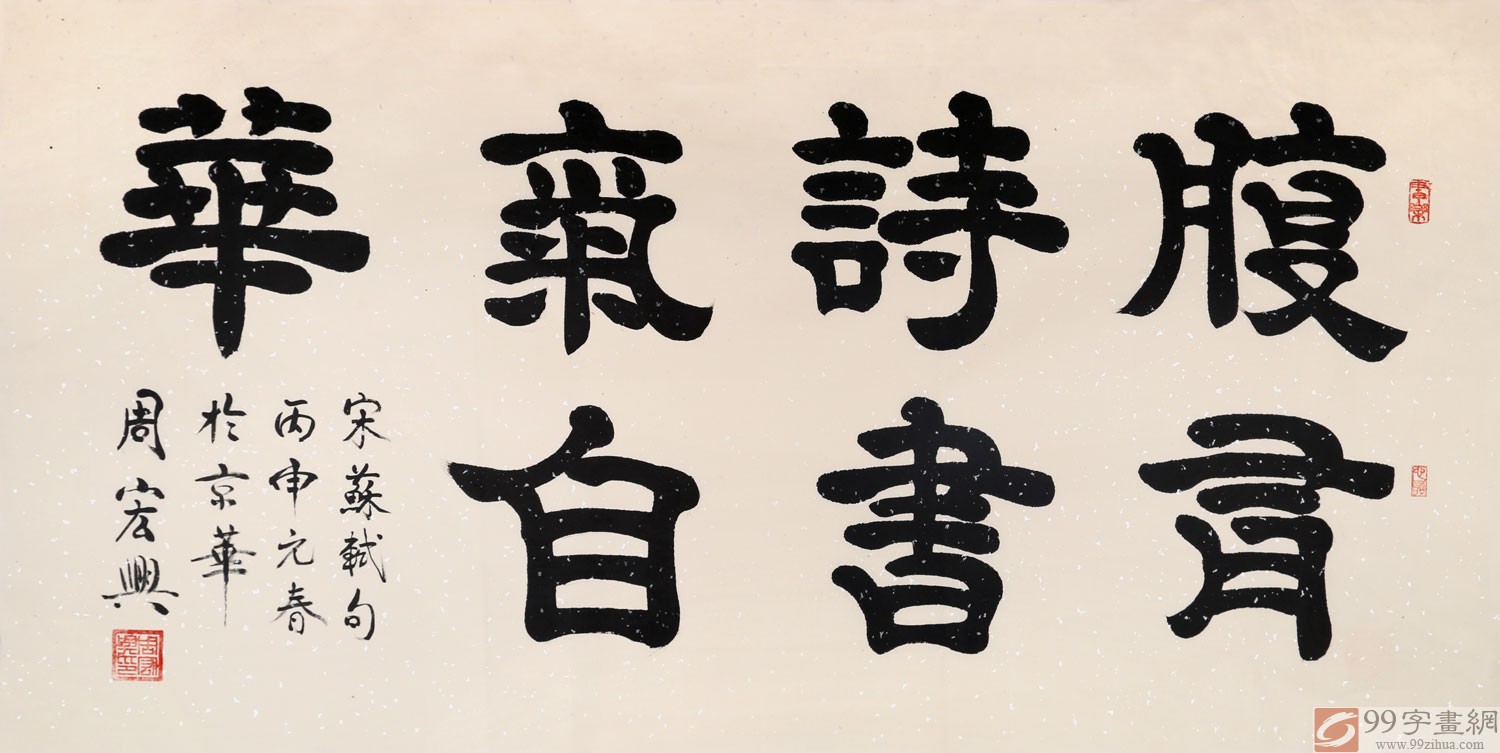 腹有
詩書
氣自
華
宋蘇軾句
丙申元春
於京華
周宏興
99字畫網
www.99zihua.com